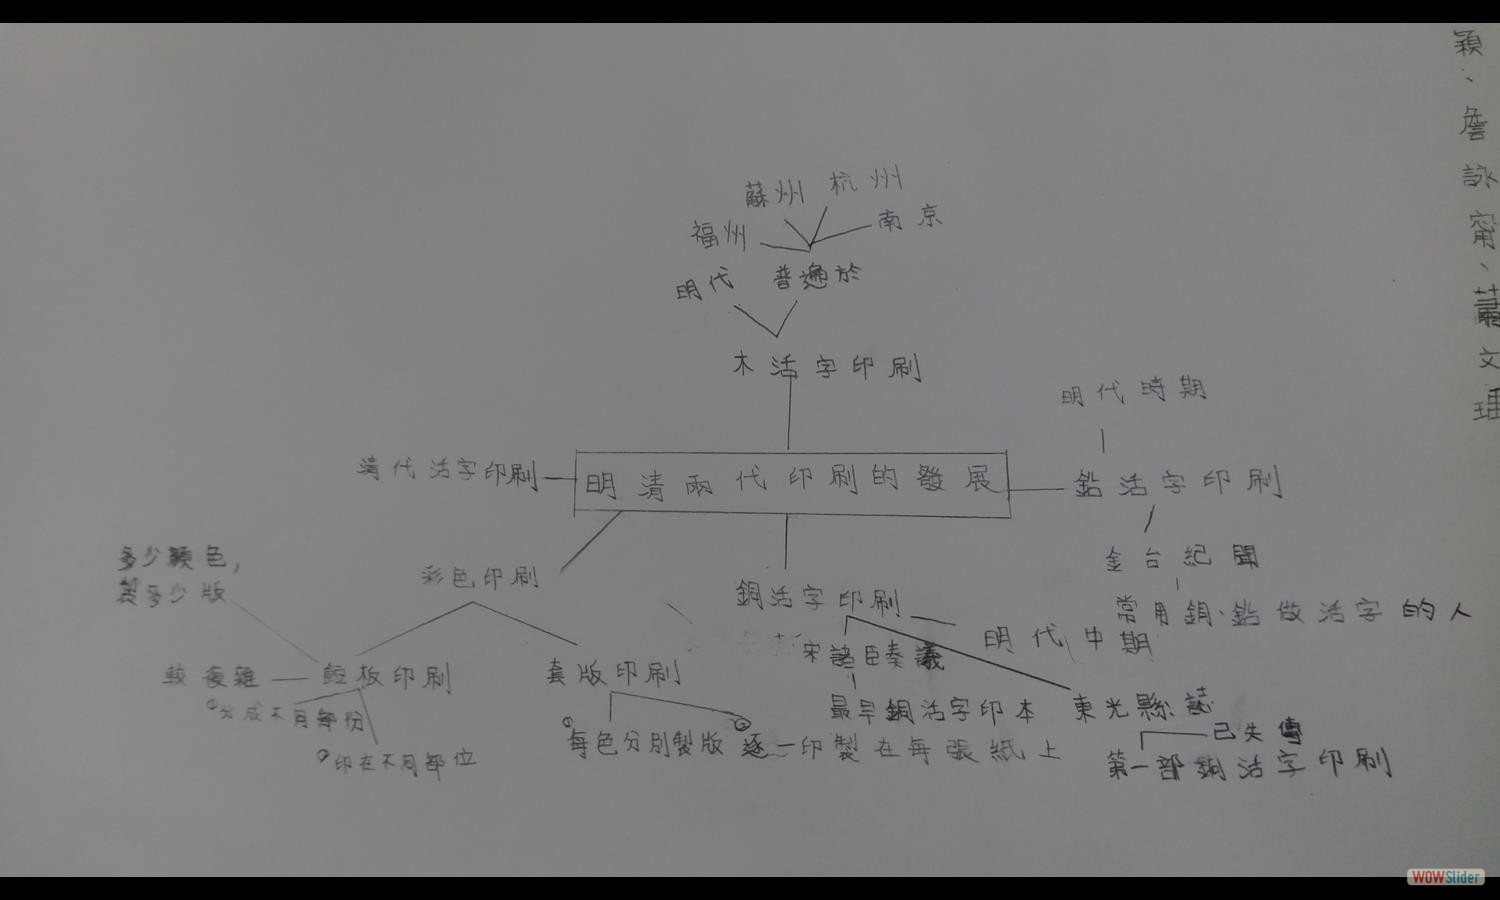 蘇州
杭州
福州
南京
明代
普遍於
木活字印刷
明代時期
清代活字印刷
明清兩代印刷的發展
鉛活字印刷
金台紀聞
常用銅、鉛做活字的人
多少顏色,
製多少版
彩色印刷
銅活字印刷
明代中期
宋諸臣奏議
最早銅活字印本
東光縣誌
已失傳
第一部銅活字印刷
較複雜
餖板印刷
套版印刷
①分成不同部份
②印在不同部位
①每色分別製版
②逐一印製在每張紙上
穎、詹詠甯、蕭文理
WOWSlider